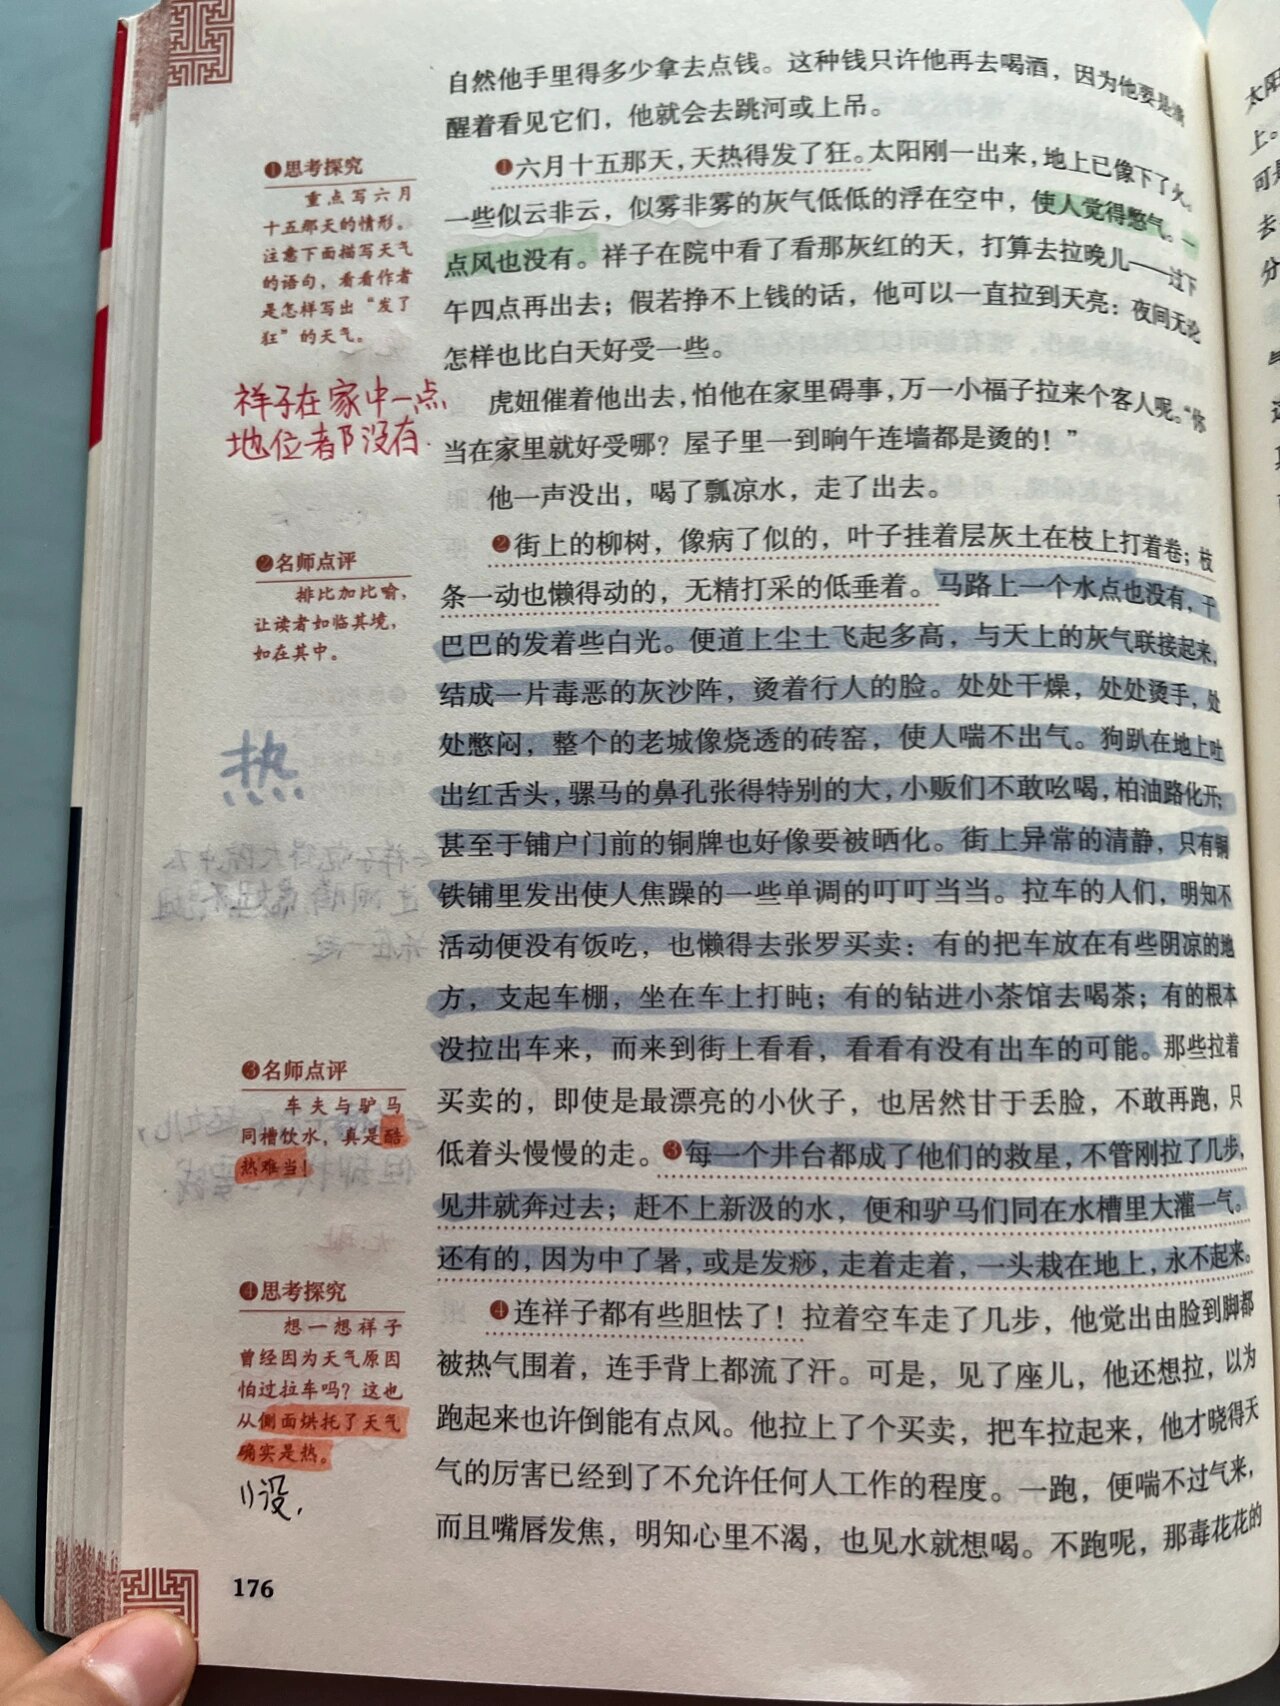 自然他手里得多少拿去点钱。这种钱只许他再去喝酒，因为他要是清
醒着看见它们，他就会去跳河或上吊。
❶思考探究
重点写六月
十五那天的情形。
注意下面描写天气
的语句，看看作者
是怎样写出“发了
狂”的天气。
❶六月十五那天，天热得发了狂。太阳刚一出来，地上已像下了火。
一些似云非云，似雾非雾的灰气低低的浮在空中，使人觉得憋气。一
点风也没有。祥子在院中看了看那灰红的天，打算去拉晚儿——过下
午四点再出去；假若挣不上钱的话，他可以一直拉到天亮：夜间无论
怎样也比白天好受一些。
祥子在家中一点
地位都没有.
虎妞催着他出去，怕他在家里碍事，万一小福子拉来个客人呢。“你
当在家里就好受哪？屋子里一到晌午连墙都是烫的！”
他一声没出，喝了瓢凉水，走了出去。
❷名师点评
排比加比喻，
让读者如临其境，
如在其中。
❷街上的柳树，像病了似的，叶子挂着层灰土在枝上打着卷；枝
条一动也懒得动的，无精打采的低垂着。马路上一个水点也没有，干
巴巴的发着些白光。便道上尘土飞起多高，与天上的灰气联接起来，
结成一片毒恶的灰沙阵，烫着行人的脸。处处干燥，处处烫手，处
处憋闷，整个的老城像烧透的砖窑，使人喘不出气。狗趴在地上吐
出红舌头，骡马的鼻孔张得特别的大，小贩们不敢吆喝，柏油路化开；
甚至于铺户门前的铜牌也好像要被晒化。街上异常的清静，只有铜
铁铺里发出使人焦躁的一些单调的叮叮当当。拉车的人们，明知不
活动便没有饭吃，也懒得去张罗买卖：有的把车放在有些阴凉的地
方，支起车棚，坐在车上打盹；有的钻进小茶馆去喝茶；有的根本
没拉出车来，而来到街上看看，看看有没有出车的可能。那些拉着
买卖的，即使是最漂亮的小伙子，也居然甘于丢脸，不敢再跑，只
低着头慢慢的走。❸每一个井台都成了他们的救星，不管刚拉了几步，
见井就奔过去；赶不上新汲的水，便和驴马们同在水槽里大灌一气。
还有的，因为中了暑，或是发痧，走着走着，一头栽在地上，永不起来。
热
❸名师点评
车夫与驴马
同槽饮水，真是酷
热难当！
❹思考探究
想一想祥子
曾经因为天气原因
怕过拉车吗？这也
从侧面烘托了天气
确实是热。
1)没.
❹连祥子都有些胆怯了！拉着空车走了几步，他觉出由脸到脚都
被热气围着，连手背上都流了汗。可是，见了座儿，他还想拉，以为
跑起来也许倒能有点风。他拉上了个买卖，把车拉起来，他才晓得天
气的厉害已经到了不允许任何人工作的程度。一跑，便喘不过气来，
而且嘴唇发焦，明知心里不渴，也见水就想喝。不跑呢，那毒花花的
176
太阳
上。
可是
去
分